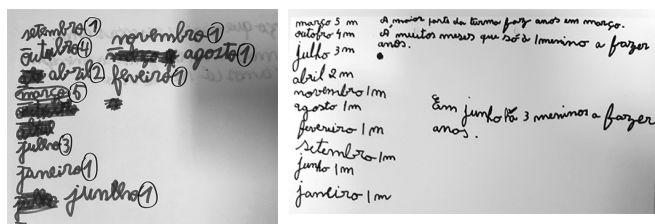 setembro 1
outubro 4
abril 2
março 5
julho 3
janeiro 1
junlho 1
novembro 1
agosto 1
feveiro 1
março 5 m
outofro 4 m
julho 3 m
abril 2 m
novembro 1 m
agosto 1 m
fevereiro 1 m
setembro 1 m
junho 1 m
janeiro 1 m
A maior parte da turma faz anos em março.
A muitos meses que só à 1 menino a fazer
anos.
Em junho há 3 meninos a fazer
anos.